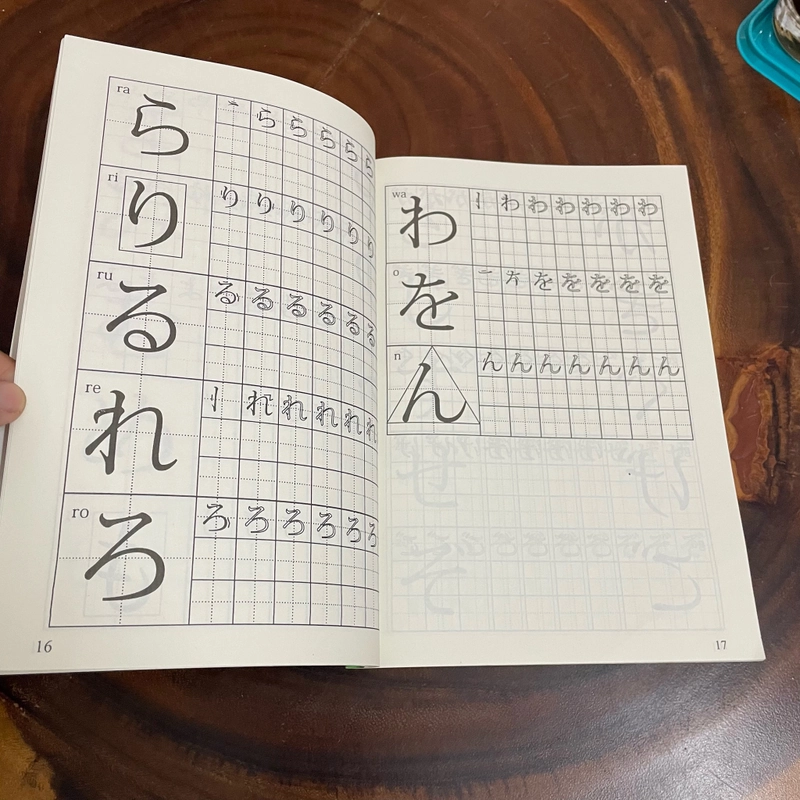 ra
ら ら ら ら ら ら
ri
り り り り り り り
ru
る る る る る る る
re
れ れ れ れ れ れ
ro
ろ ろ ろ ろ ろ ろ ろ
16
wa
わ わ わ わ わ わ わ
o
を を を を を を
n
ん ん ん ん ん ん ん ん
17